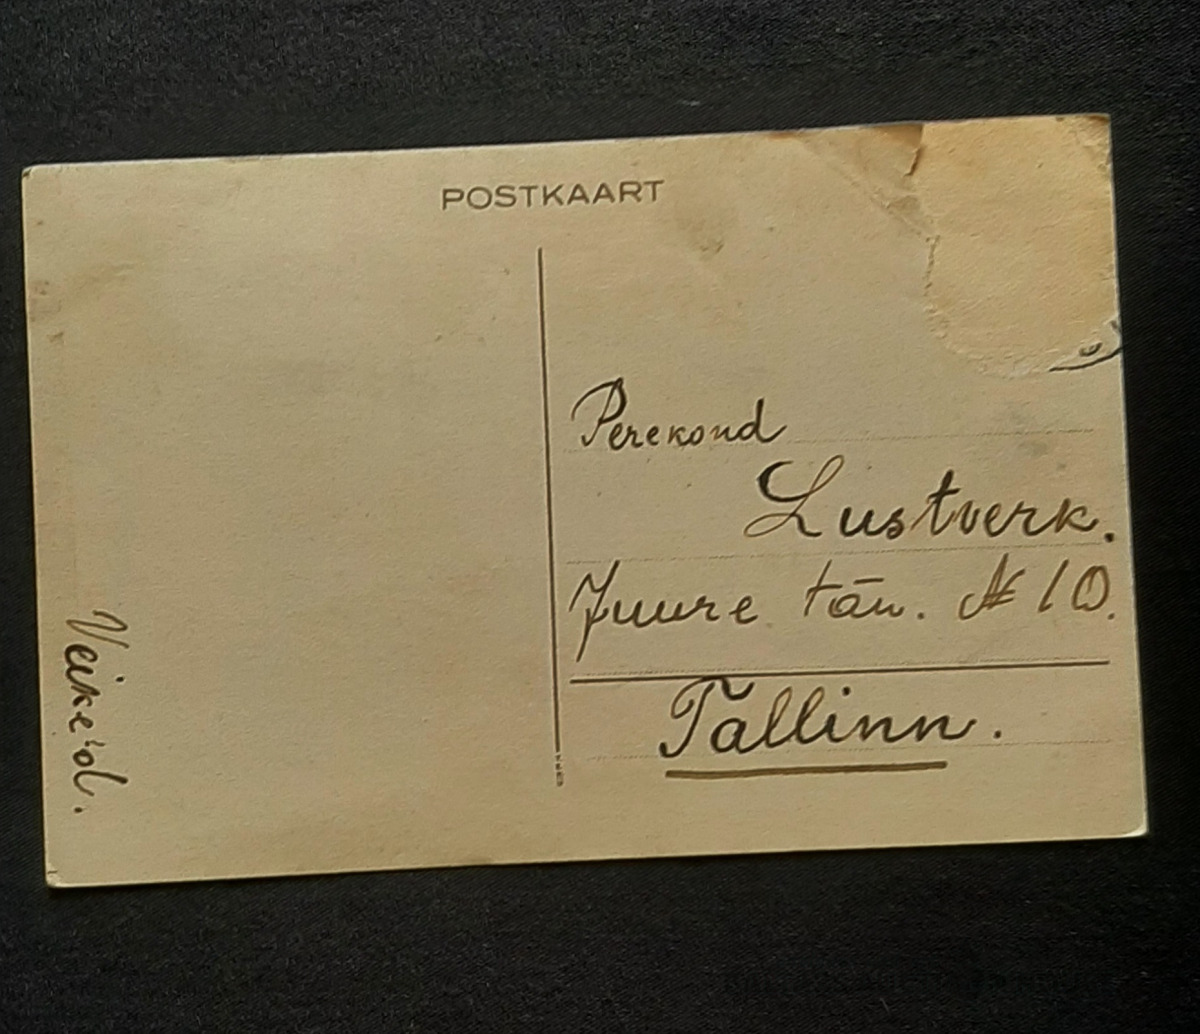 POSTKAART
Perekond
Lustverk.
Juure tän. № 10.
Tallinn.